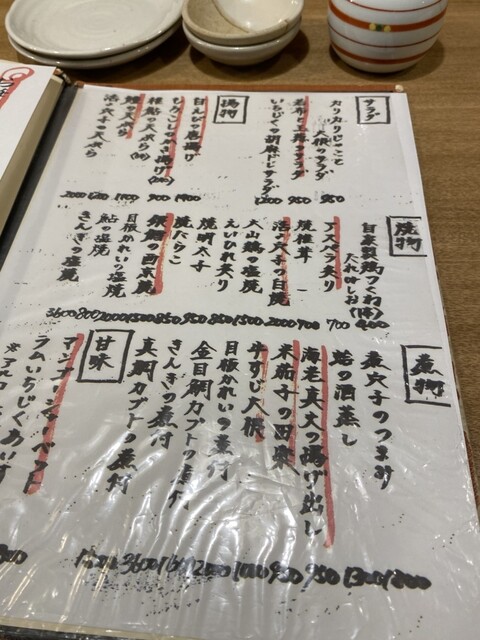 サラダ
カリカリじゃこと
大根のサラダ
950
若布と玉葱のサラダ
950
いちじくの胡麻ドレサラダ
1200
揚物
白えび唐揚げ
1400
とうもろこしかき揚げ
900
稚鮎の天ぷら
1100
鱧の天ぷら
活〆穴子の天ぷら
2000
焼物
自家製鶏つくね
たれ or しお
400
アスパラ炙り
700
焼椎茸
700
活〆穴子の白焼
2000
大山鶏の塩焼
1500
えいひれ炙り
850
焼明太子
950
焼たらこ
850
銀鱈の西京焼
1500
目板かれいの塩焼
鮎の塩焼
800
きんきの塩焼
3600
煮物
煮穴子のつまみ
1200
蛤の酒蒸し
1300
海老真丈の揚げ出し
950
米茄子の田楽
950
牛すじ大根
目板かれいの煮付
1200
金目鯛カブトの煮付
きんきの煮付
3600
真鯛カブトの煮付
甘味
マンゴーシャーベット
ラムいちじくあいす